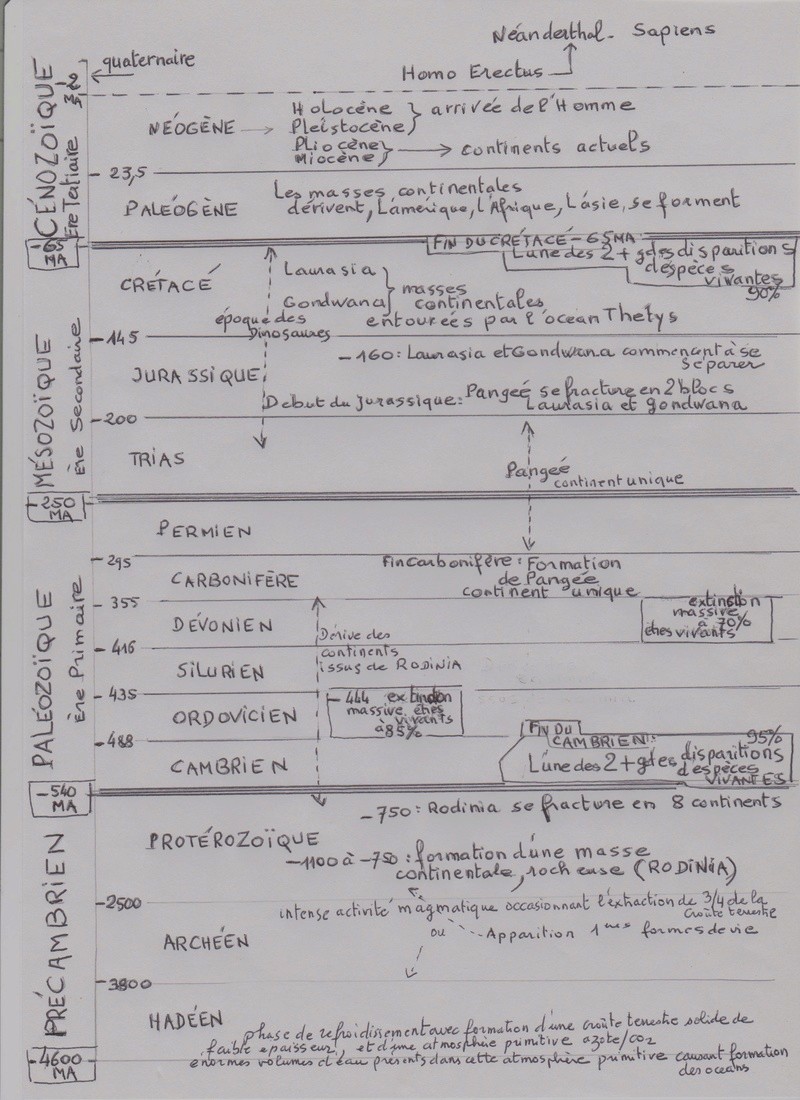 Néanderthal. Sapiens
quaternaire
Homo Erectus
CÉNOZOÏQUE
Ère Tertiaire
-2
MA
NÉOGÈNE
Holocène
Pleistocène
arrivée de l'Homme
Pliocène
Miocène
continents actuels
- 23,5
PALÉOGÈNE
Les masses continentales
dérivent, L'amérique, l'Afrique, L'asie, se forment
-65
MA
FIN DU CRÉTACÉ - 65 MA
L'une des 2 + gdes disparitions
d'espèces
vivantes
90%
MÉSOZOÏQUE
Ère Secondaire
CRÉTACÉ
Laurasia
Gondwana
masses
continentales
entourées par l'océan Thetys
époque des
Dinosaures
-145
JURASSIQUE
- 160 : Laurasia et Gondwana commencent à se
séparer
Debut du jurassique : Pangeé se fracture en 2 blocs
Laurasia et gondwana
-200
TRIAS
Pangeé
continent unique
-250
MA
PALÉOZOÏQUE
Ère Primaire
PERMIEN
- 295
Fin Carbonifère : Formation
de Pangée
continent unique
CARBONIFÈRE
- 355
extinction
massive
à 70%
êtres vivants
DÉVONIEN
- 416
Dérive des
continents
issus de RODINIA
SILURIEN
- 435
- 444 extinction
massive êtres
vivants
à 85%
ORDOVICIEN
- 488
FIN DU
CAMBRIEN :
95%
L'une des 2 + gdes disparitions
d'espèces
VIVANTES
CAMBRIEN
-540
MA
PRÉCAMBRIEN
-750 : Rodinia se fracture en 8 continents
PROTÉROZOÏQUE
-1100 à -750 : formation d'une masse
continentale, rocheuse (RODINIA)
-2500
intense activité magmatique occasionnant l'extraction de 3/4 de la
croûte terrestre
ou
Apparition 1ères formes de vie
ARCHÉEN
- 3800
HADÉEN
phase de refroidissement avec formation d'une croûte terrestre solide de
faible épaisseur, et d'une atmosphère primitive azote/CO2
enormes volumes d'eau présents dans cette atmosphère primitive causant formation
des océans
-4600
MA